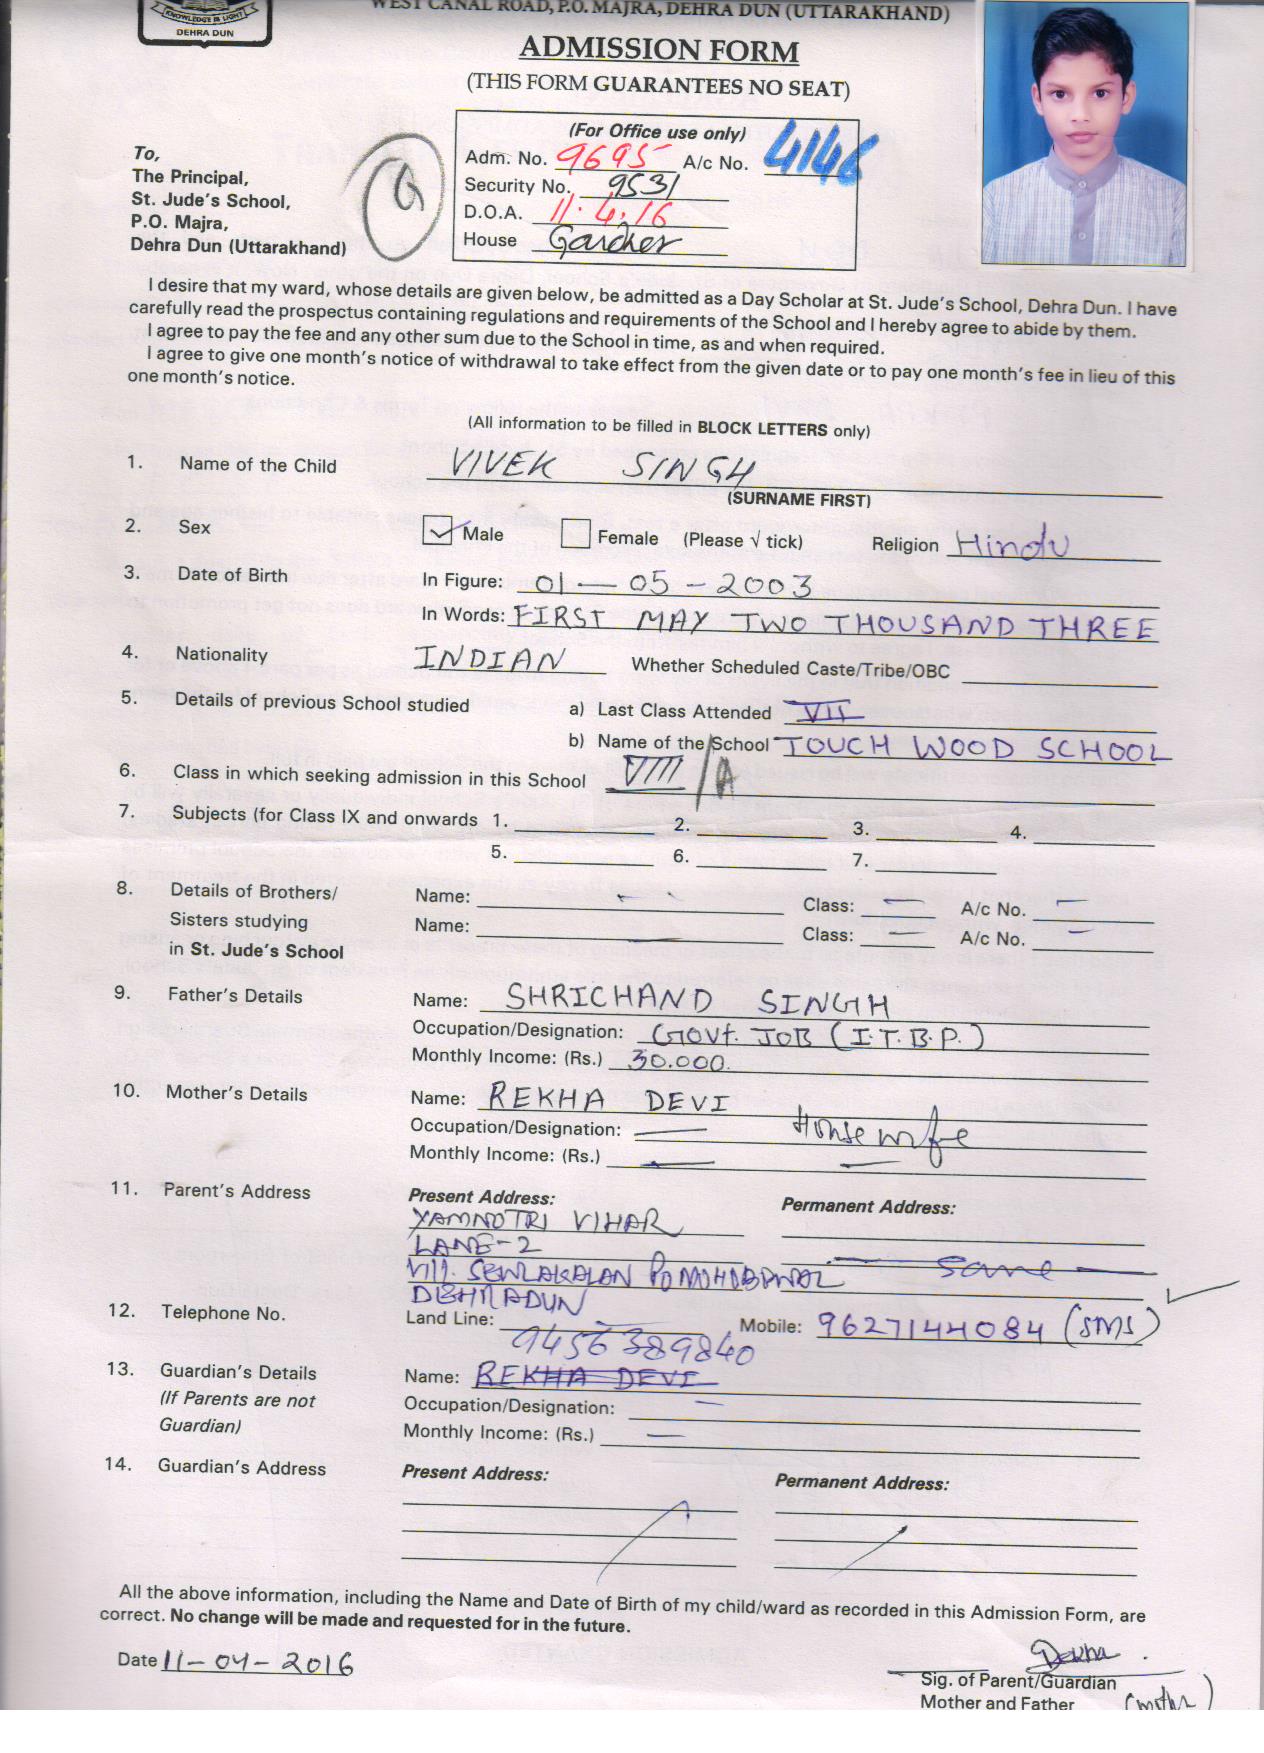 KNOWLEDGE IS LIGHT
DEHRA DUN
WEST CANAL ROAD, P.O. MAJRA, DEHRA DUN (UTTARAKHAND)
ADMISSION FORM
(THIS FORM GUARANTEES NO SEAT)
(For Office use only)
Adm. No. 9695 A/c No. 4146
Security No. 9531
D.O.A. 11.4.16
House Gardner
To,
The Principal,
St. Jude's School,
P.O. Majra,
Dehra Dun (Uttarakhand)
I desire that my ward, whose details are given below, be admitted as a Day Scholar at St. Jude's School, Dehra Dun. I have
carefully read the prospectus containing regulations and requirements of the School and I hereby agree to abide by them.
I agree to pay the fee and any other sum due to the School in time, as and when required.
I agree to give one month's notice of withdrawal to take effect from the given date or to pay one month's fee in lieu of this
one month's notice.
(All information to be filled in BLOCK LETTERS only)
1. Name of the Child VIVEK SINGH
(SURNAME FIRST)
2. Sex Male Female (Please √ tick) Religion Hindu
3. Date of Birth In Figure: 01 — 05 - 2003
In Words: FIRST MAY TWO THOUSAND THREE
4. Nationality INDIAN Whether Scheduled Caste/Tribe/OBC
5. Details of previous School studied a) Last Class Attended VII
b) Name of the School TOUCH WOOD SCHOOL
6. Class in which seeking admission in this School VIII /A
7. Subjects (for Class IX and onwards 1. 2. 3. 4.
5. 6. 7.
8. Details of Brothers/ Name: Class: — A/c No. —
Sisters studying Name: — Class: — A/c No. —
in St. Jude's School
9. Father's Details Name: SHRICHAND SINGH
Occupation/Designation: GOVt. JOB (I.T.B.P.)
Monthly Income: (Rs.) 30.000.
10. Mother's Details Name: REKHA DEVI
Occupation/Designation: — House wife
Monthly Income: (Rs.) — —
11. Parent's Address Present Address: Permanent Address:
YAMNOTRI VIHAR
LANE-2
Vill. SEWLAKALAN PO MOHOBAWAL — Same —
DEHRADUN
12. Telephone No. Land Line: — Mobile: 9627144084 (SMS)
9456389840
13. Guardian's Details Name: REKHA DEVI
(If Parents are not Occupation/Designation: —
Guardian) Monthly Income: (Rs.) —
14. Guardian's Address Present Address: Permanent Address:
All the above information, including the Name and Date of Birth of my child/ward as recorded in this Admission Form, are
correct. No change will be made and requested for in the future.
Date 11-04-2016 Rekha
Sig. of Parent/Guardian
Mother and Father (mother)